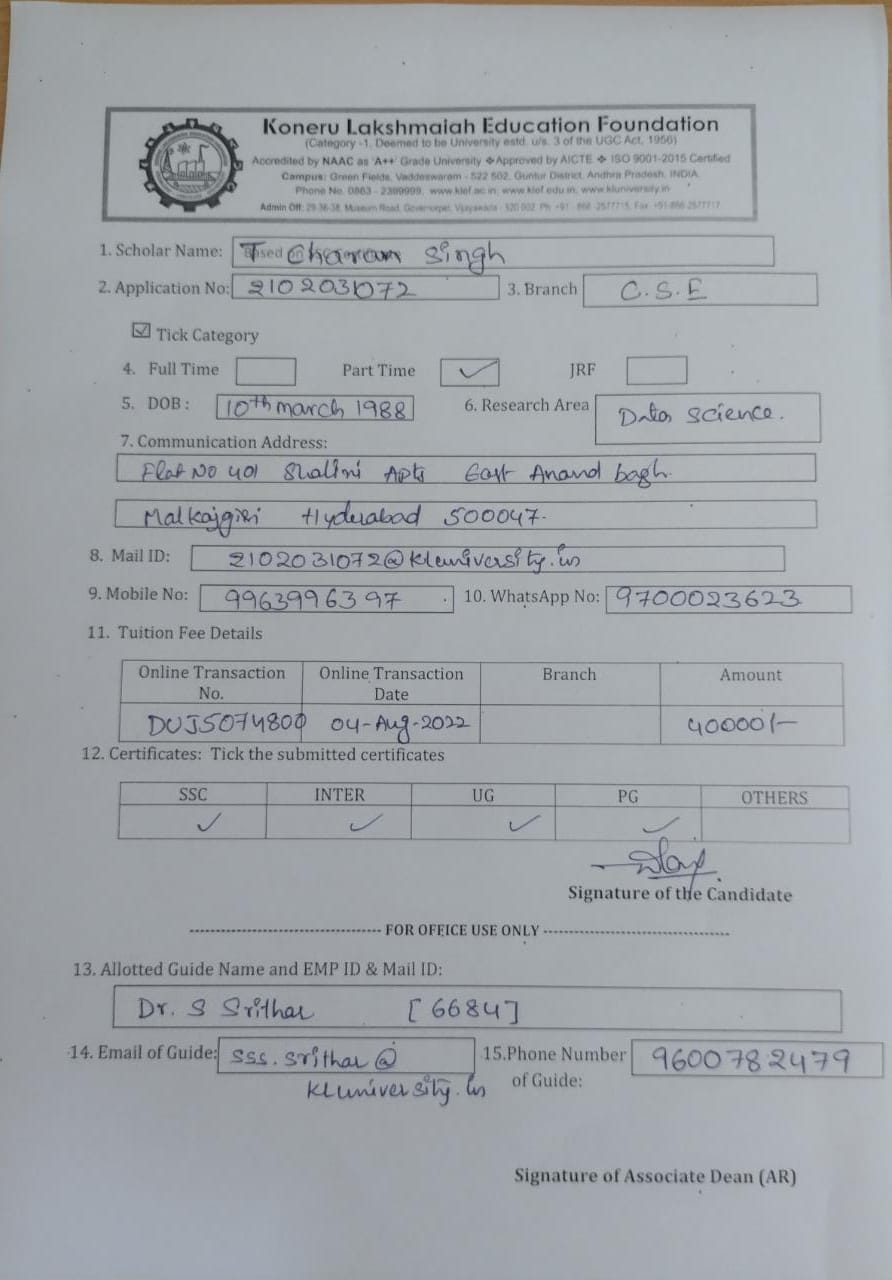 Koneru Lakshmaiah Education Foundation
(Category -1, Deemed to be University estd. u/s. 3 of the UGC Act, 1956)
Accredited by NAAC as 'A++' Grade University ❖Approved by AICTE ❖ ISO 9001-2015 Certified
Campus: Green Fields, Vaddeswaram - 522 502, Guntur District, Andhra Pradesh, INDIA.
Phone No. 0863 - 2399999, www.klef.ac.in, www.klef.edu.in, www.kluniversity.in
Admin Off: 29-36-38, Museum Road, Governorpet, Vijayawada - 520 002. Ph: +91 - 866 -2577715, Fax: +91-866-2577717
1. Scholar Name: T Charan Singh
2. Application No: 2102031072 3. Branch C.S.E
☑ Tick Category
4. Full Time Part Time ✓ JRF
5. DOB : 10th march 1988 6. Research Area Data Science.
7. Communication Address:
Flat No 401 Shalini Apts East Anand bagh.
Malkajgiri Hyderabad 500047.
8. Mail ID: 2102031072@kluniversity.in
9. Mobile No: 9963996397 10. WhatsApp No: 9700023623
11. Tuition Fee Details
Online Transaction No. Online Transaction Date Branch Amount
DUJ5074800 04-Aug-2022 40000/-
12. Certificates: Tick the submitted certificates
SSC INTER UG PG OTHERS
✓ ✓ ✓ ✓
Signature of the Candidate
FOR OFFICE USE ONLY
13. Allotted Guide Name and EMP ID & Mail ID:
Dr. S Srithar [6684]
14. Email of Guide: sss.srithar@ 15.Phone Number 9600782479
kluniversity.in of Guide:
Signature of Associate Dean (AR)